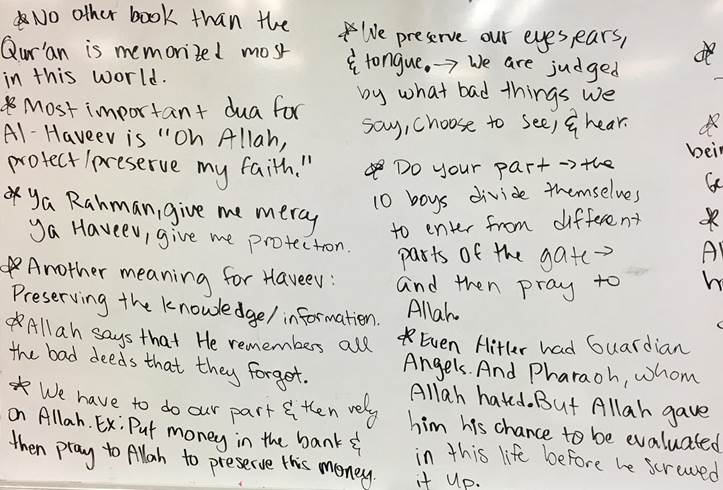 *No other book than the
Qur'an is memorized most
in this world.
*Most important dua for
Al-Haveev is "Oh Allah,
protect/preserve my faith."
*Ya Rahman, give me mercy
Ya Haveev, give me protection.
*Another meaning for Haveev:
Preserving the knowledge/information.
*Allah says that He remembers all
the bad deeds that they forgot.
*We have to do our part & then rely
on Allah. Ex: Put money in the bank &
then pray to Allah to preserve this money.
*We preserve our eyes, ears,
& tongue. → We are judged
by what bad things we
say, choose to see, & hear.
*Do your part → the
10 boys divide themselves
to enter from different
parts of the gate →
and then pray to
Allah.
*Even Hitler had Guardian
Angels. And Pharaoh, whom
Allah hated. But Allah gave
him his chance to be evaluated
in this life before he screwed
it up.
*
*
bein
*
Al